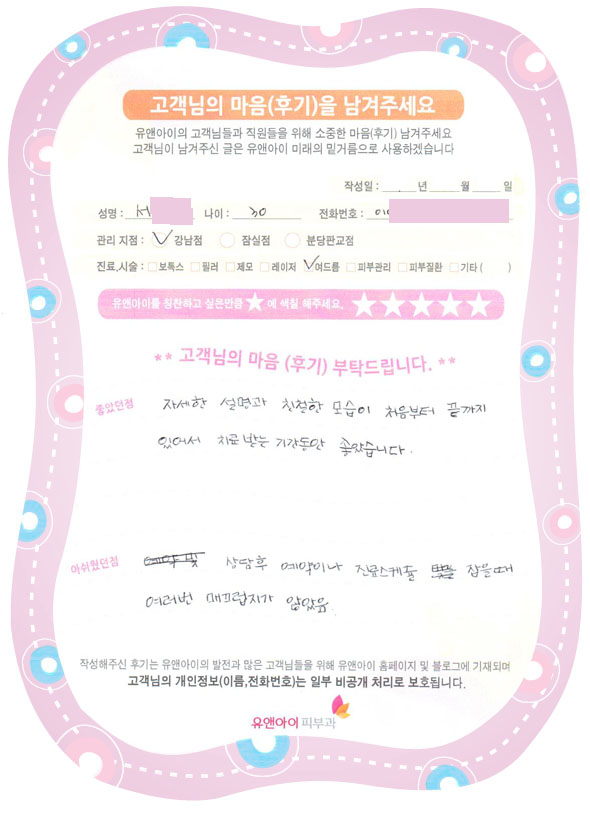 고객님의 마음(후기)을 남겨주세요
유앤아이의 고객님들과 직원들을 위해 소중한 마음(후기) 남겨주세요
고객님이 남겨주신 글은 유앤아이 미래의 밑거름으로 사용하겠습니다
작성일 : . 년 월 일
성명 : 서 나이 : 30 전화번호 : 010
관리 지점 : 강남점 잠실점 분당판교점
진료,시술 : 보톡스 필러 제모 레이저 여드름 피부관리 피부질환 기타 ( )
유앤아이를 칭찬하고 싶은만큼 ★ 에 색칠 해주세요. ★★★★★
** 고객님의 마음 (후기) 부탁드립니다. **
좋았던점 자세한 설명과 친절한 모습이 처음부터 끝까지
있어서 치료 받는 기간동안 좋았습니다.
아쉬웠던점 상담후 예약이나 진료스케쥴 잡을때
여러번 매끄럽지가 않았음.
작성해주신 후기는 유앤아이의 발전과 많은 고객님들을 위해 유앤아이 홈페이지 및 블로그에 기재되며
고객님의 개인정보(이름,전화번호)는 일부 비공개 처리로 보호됩니다.
유앤아이 피부과